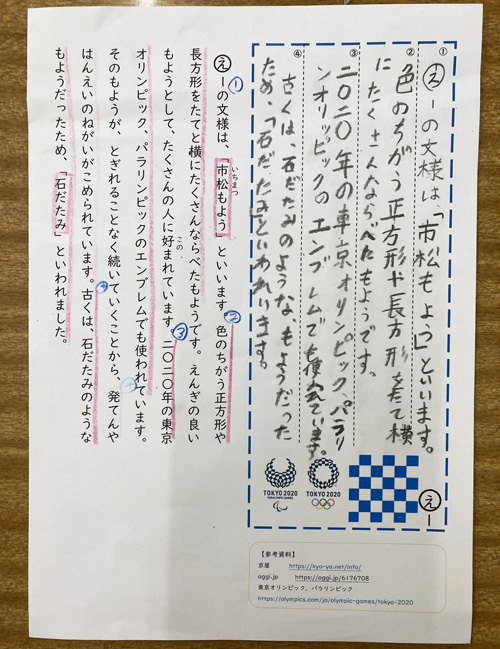 ①
え ーの文様は、「市松もよう」といいます。
え ー
②
色のちがう正方形や長方形をたて横
にたくさんならべたもようです。
③
二〇二〇年の東京オリンピック、パラリ
ンオリッピックのエンブレムでも使われています。
④
古くは、石だたみのような、もようだった
ため、「石だたみ」といわれいます。
TOKYO 2020
PARALYMPIC GAMES
TOKYO 2020
① え ーの文様は、「市松もよう」といいます。② 色のちがう正方形や
いちまつ
長方形をたてと横にたくさんならべたもようです。えんぎの良い
もようとして、たくさんの人に好まれています。③ 二〇二〇年の東京
この
オリンピック、パラリンピックのエンブレムでも使われています。
そのもようが、とぎれることなく続いていくことから、発てんや
はんえいのねがいがこめられています。④ 古くは、石だたみのような
もようだったため、「石だたみ」といわれました。
【参考資料】
京屋 https://kyo-ya.net/info/
oggi.jp https://oggi.jp/6176708
東京オリンピック、パラリンピック
https://olympics.com/ja/olympic-games/tokyo-2020